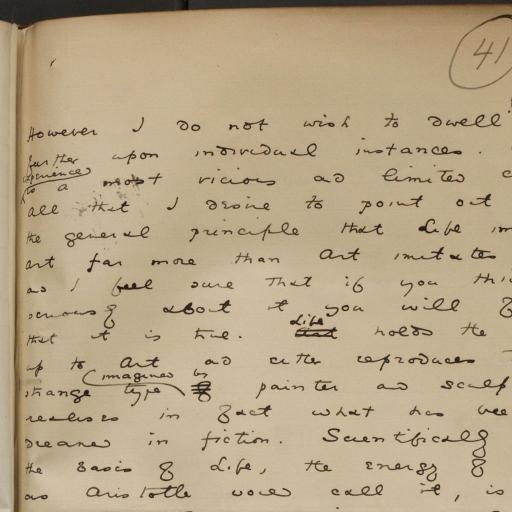 41
However I do not wish to dwell
further upon individual instances.
experience
is a most vicious and limited c
All that I desire to point out
the general principle that Life im
Art far more than Art imitates
and I feel sure that if you thi
seriously about it you will f
that it is true. Life holds the
up to Art and either reproduces
strange type imagined by painter and sculp
realises in fact what has bee
dreamed in fiction. Scientifically
the basis of Life, the energy of
as Aristotle would call it, is